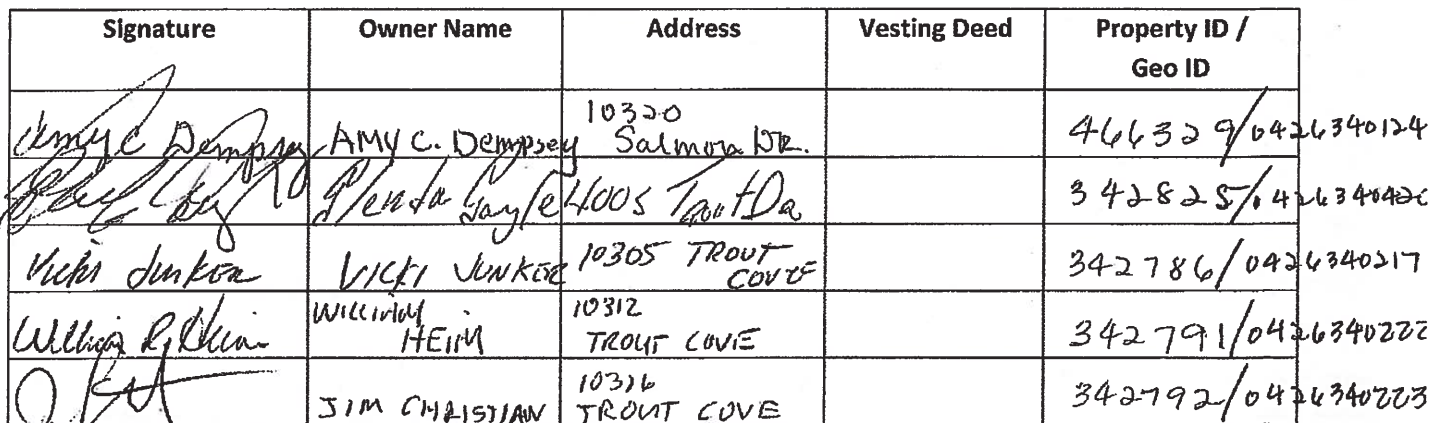 Signature Owner Name Address Vesting Deed Property ID /
Geo ID
10320
Amy C Dempsey AMY C. Dempsey Salmon DR. 466329/0426340124
Glenda Gayle 4005 Trout Dr 342825/042634042
Vicki Junker VICKI JUNKER 10305 TROUT 342786/0426340217
COVE
WILLIAM 10312
William R. Heim HEIM TROUT COVE 342791/0426340222
10316
JIM CHRISTIAN TROUT COVE 342792/0426340223